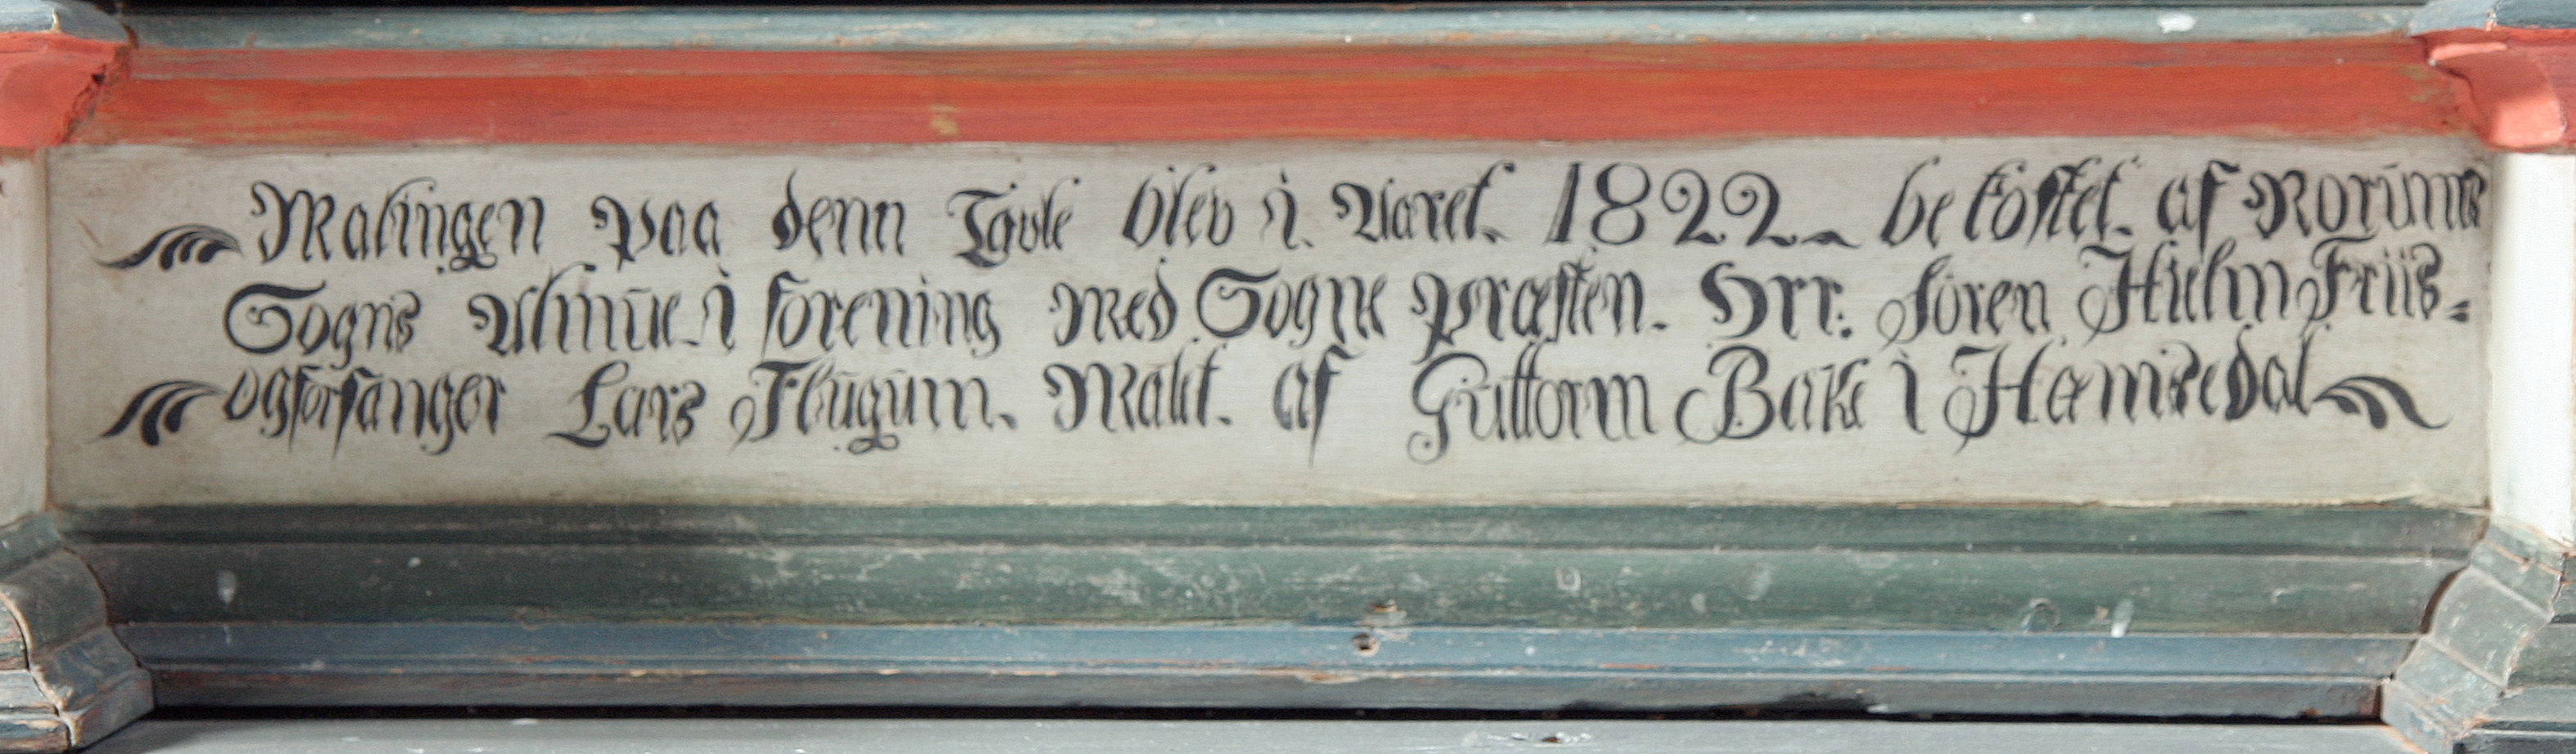 Malingen paa denn Tavle blev i. Aaret. 1822 bekostet. af Rorums
Sogns Almue i forening Med Sogne Præsten. Hrr: Søren Hielm Friis.
og forsanger Lars Flugum. Malit. af Guttorm Bake i Hæmsedal